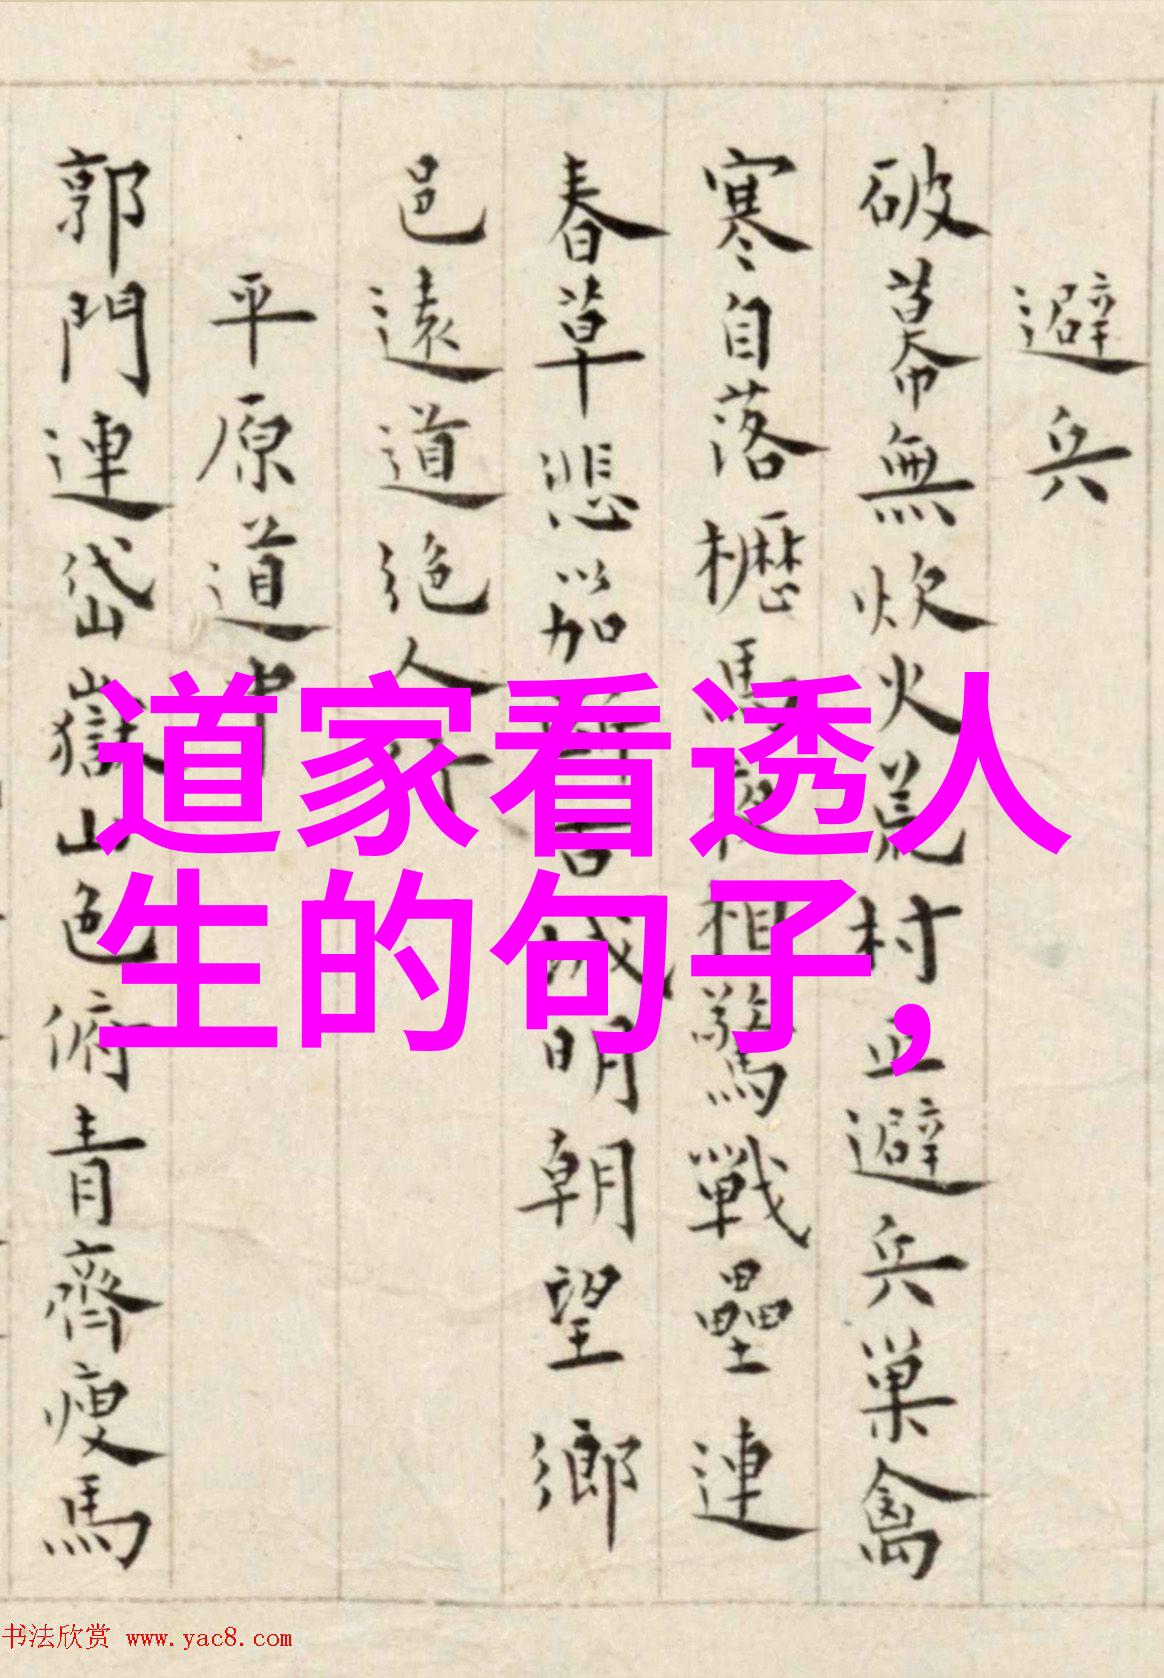 避兵
破幕無炊火荒村正避兵巢禽
寒自落櫪馬夜相驚戰壘連
春草悲笳城明朝望鄉
邑遠道絕人行
平原道中
郭門連岱嶽山色俯青齊瘦馬
道家看透人
生的句子，
书法欣赏 www.yac8.com